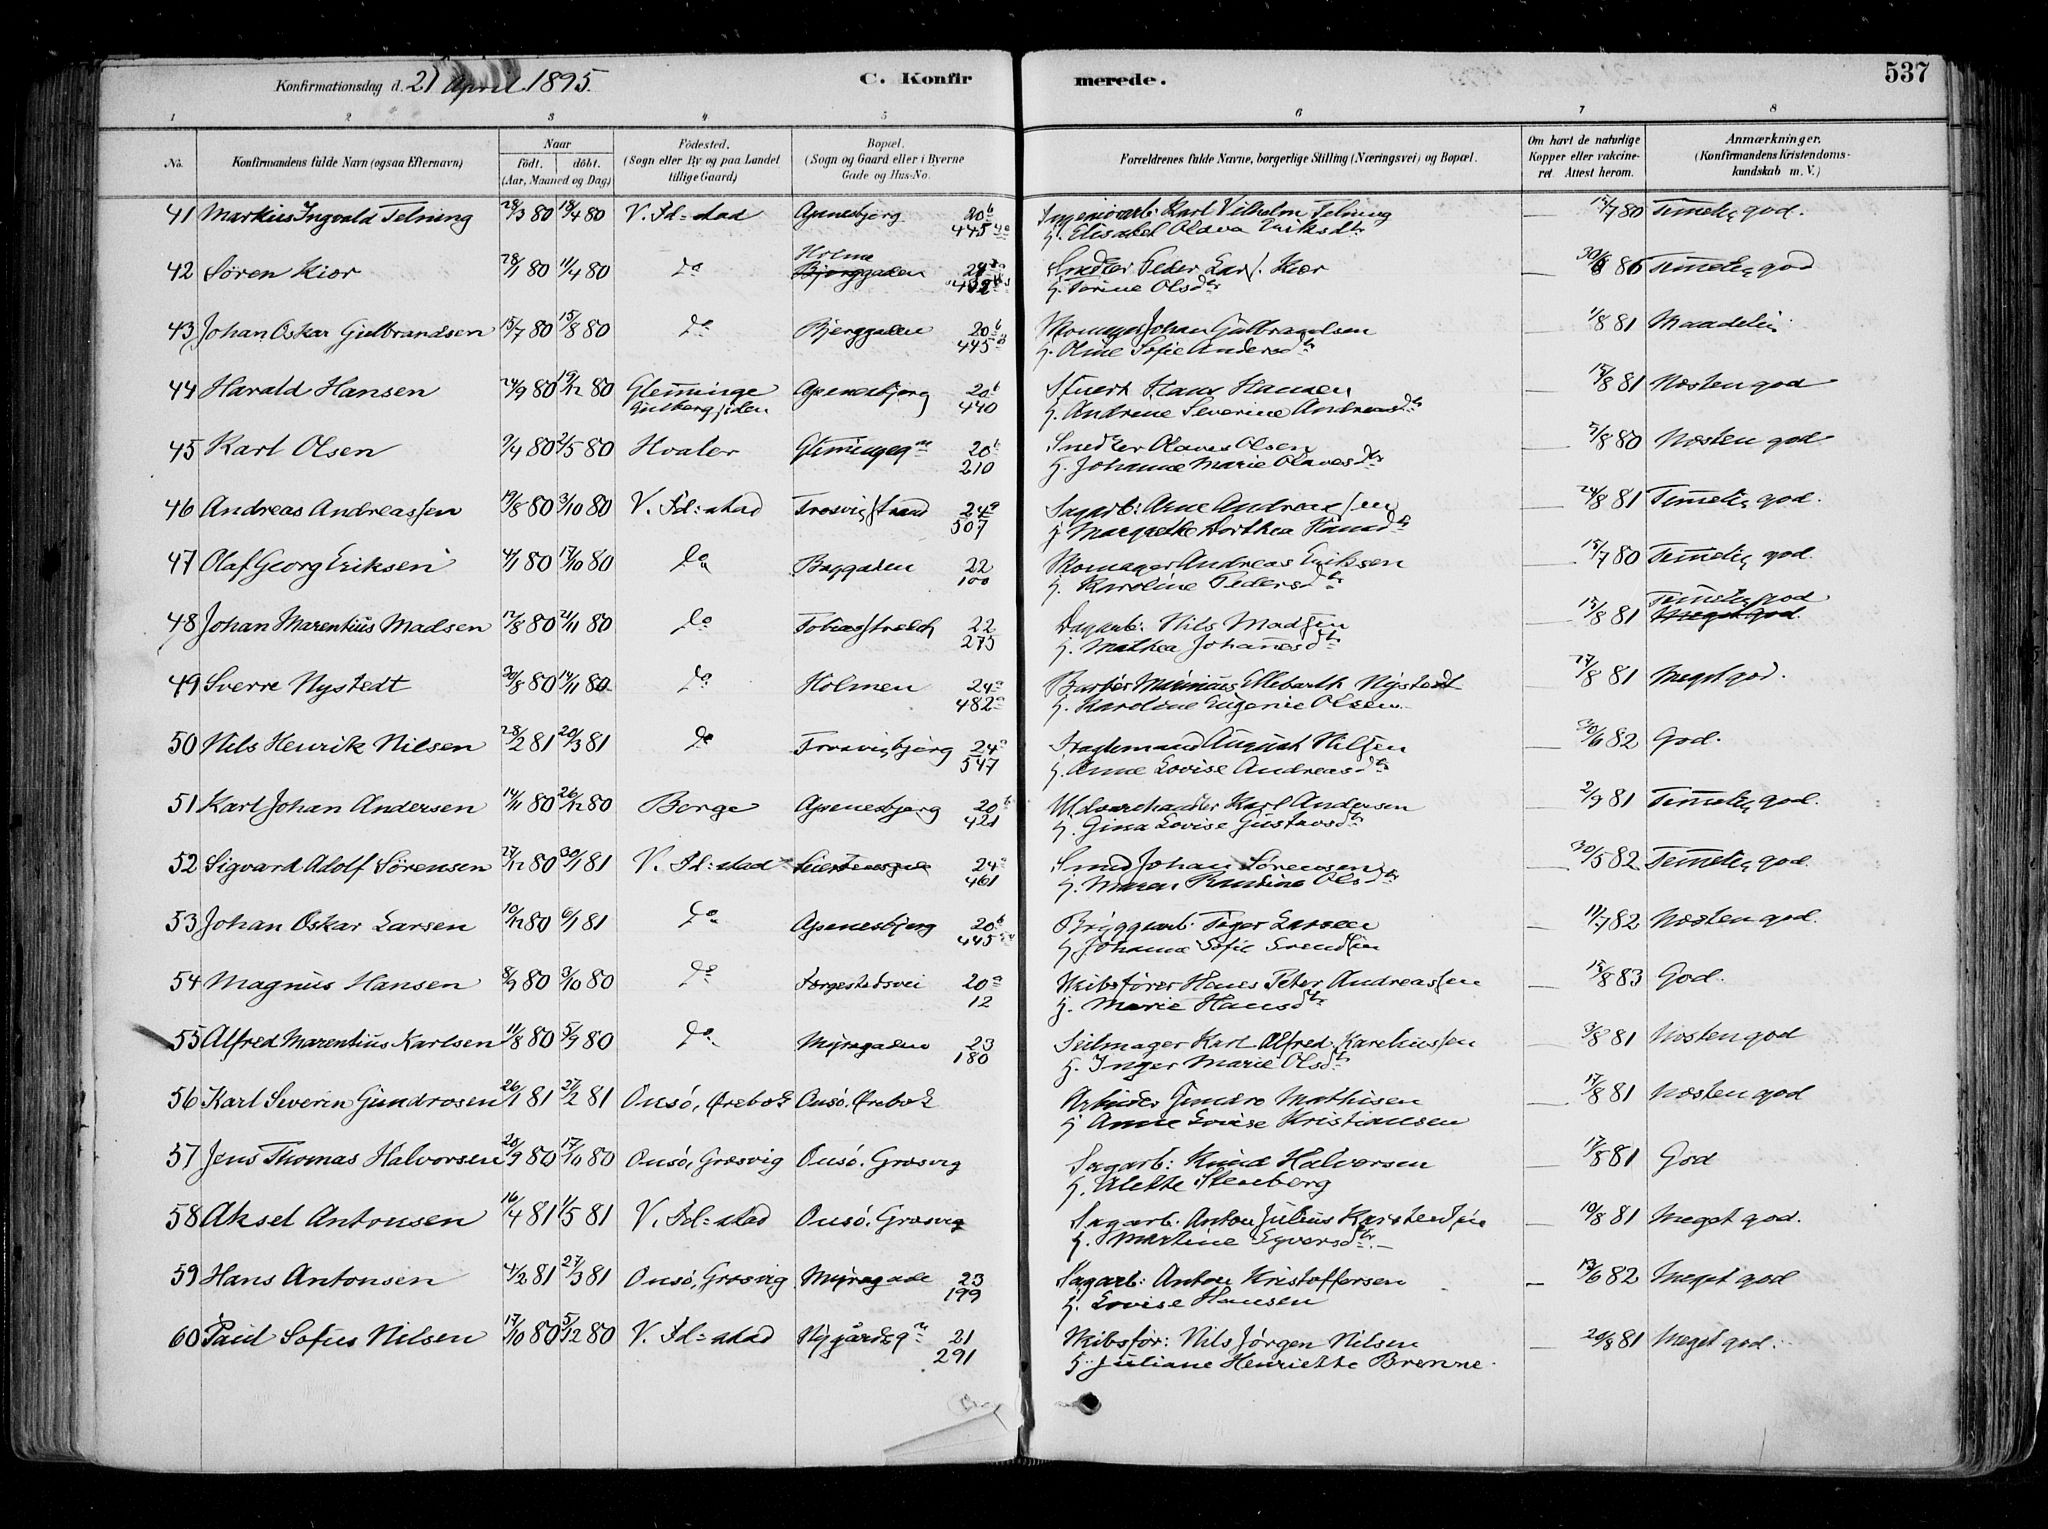 Konfirmationsdag d. 21 April 1895. C. Konfirmerede. 537
1 2 3 4 5 6 7 8
No. Konfirmandens fulde Navn (ogsaa Efternavn) Naar Födt. döbt. (Aar, Maaned og Dag) Födested. (Sogn eller By og paa Landet tillige Gaard) Bopæl. (Sogn og Gaard eller i Byerne Gade og Hus-No. Forældrenes fulde Navne, borgerlige Stilling (Næringsvei) og Bopæl. Om havt de naturlige Kopper eller vakcineret. Attest herom. Anmærkninger. (Konfirmandens Kristendomskundskab m. V.)
41 Markus Ingvald Telning 28/3 80 18/4 80 V. Fd:stad Apenesbjerg 20b Karl Vilhelm Telning — 15/7 80 Temelig god.
445 H. Elisabet Olava Eriksdtr
Holme
42 Søren Kiær 28/1 80 11/4 80 do Bjerggaden 24a Peder Lars. Kiær — 86 Temelig god
H. Torine Olsdtr
43 Johan Oskar Gulbrandsen 15/7 80 15/8 80 do Bjerggaden 20b Skomager Johan Gulbrandsen — 1/8 81 Maadelig
445 H. Oline Sofie Andersdtr
44 Harald Hansen 24/9 80 19/12 80 Glemminge Apenesbjerg 20b Stuert Hans Hansen — 15/8 81 Næsten god
440 H. Andrine Severine Andreasdtr
45 Karl Olsen 9/4 80 2/5 80 Hvaler Glemingegn 20b Olaves Olsen — 3/8 80 Næsten god
210 H. Johanne Marie Olavesdtr
46 Andreas Andreassen 19/8 80 3/10 80 V. Fd:stad Trosvigstrand 24a Sagarb: Arne Andreassen — 24/8 81 Temelig god.
507 H. Margrethe Dorthea Hansdtr
47 Olaf Georg Eriksen 4/1 80 17/10 80 do Baggaden 22 Skomager Andreas Eriksen — 15/7 80 Temelig god.
100 H. Karoline Pedersdtr
Temelig god
48 Johan Marentius Madsen 12/8 80 21/11 80 do 22 Dagarb. Nils Madsen — 15/8 81 Meget god.
275 H. Mathea Johannesdtr
49 Sverre Nystedt 30/8 80 14/11 80 do Holmen 24a Barber Marinius Ellebarth Nystedt — 17/8 81 Meget god.
482a H. Karoline Eugenie Olsen
50 Nils Henrik Nilsen 28/2 81 20/3 81 do Trosvigbjerg 24a August Nilsen — 30/6 82 God.
547 H. Anne Lovise Andreasdtr
51 Karl Johan Andersen 14/11 80 26/12 80 Borge Apenesbjerg 20b Karl Andersen — 2/9 81 Temelig god.
421 H. Gina Lovise Gustavsdtr
52 Sigvard Adolf Sørensen 27/12 80 30/1 81 V. Fd:stad 24a Smed Johan Sørensen — 30/5 82 Temelig god.
461 H. Maren Olsdtr
53 Johan Oskar Larsen 10/12 80 6/1 81 do Apenesbjerg 20b Bryggearb. Larsen — 11/7 82 Næsten god.
445 H Johanne Sofie Svendsen
54 Magnus Hansen 8/9 80 3/10 80 do Færgestedsvei 20a Skibsfører Hans Peter Andreassen — 15/8 83 God.
12 H. Marie Hansdtr
55 Alfred Marentius Karlsen 11/8 80 5/9 80 do Myragaden 23 Seilmager Karl Alfred Kareliussen — 3/8 81 Næsten god
180 H. Inger Marie Olsdtr
56 Karl Severin Gundrosen 26/1 81 27/2 81 Onsö, Ørebæk Onsö. Ørebæk Arbeider Mathisen — 17/8 81 Næsten god
H Anne Lovise Kristiansen
57 Jens Thomas Halvorsen 20/9 80 17/10 80 Onsö, Græsvig Onsö. Græsvig Sagarb: Knud Halvorsen — 17/8 81 God
H. Alette Stenberg
58 Aksel Antonsen 16/4 81 1/5 81 V. Fd:stad Onsö. Græsvig Sagarb. Anton Julius — 10/8 81 Meget god.
H. Martine Syversdtr
59 Hans Antonsen 4/2 81 27/3 81 Onsö, Græsvig Myragade 23 Sagarb: Anton Kristoffersen — 13/6 82 Meget god
199 H. Lovise Hansen
60 Paul Sofus Nilsen 17/10 80 5/12 80 V. Fd:stad Nygårdsgn 21 Skibsfør: Nils Jørgen Nilsen — 20/8 81 Meget god.
291 H. Juliane Henriette Brenne.